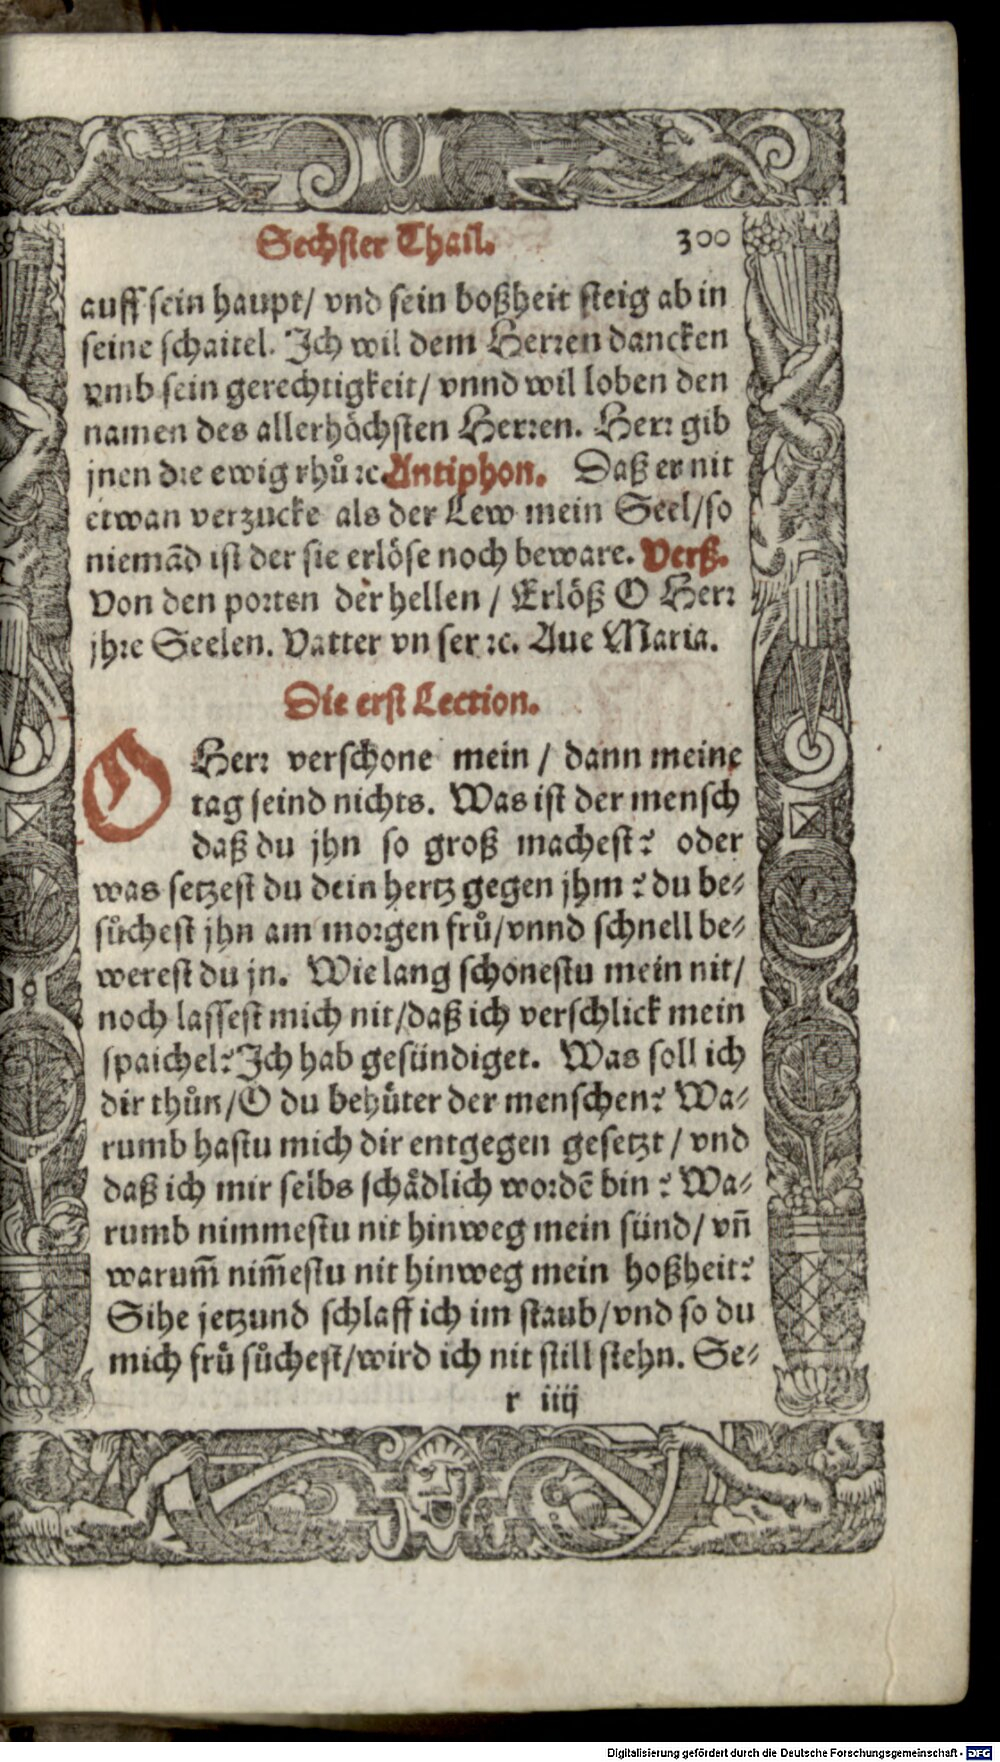 Sechster Thail. 300
auff sein haupt/ vnd sein boßheit steig ab in
seine schaitel. Ich wil dem Herren dancken
vmb sein gerechtigkeit/ vnnd wil loben den
namen des allerhöchsten Herren. Herr gib
jnen die ewig rhů ꝛc. Antiphon. Daß er nit
etwan verzucke als der Lew mein Seel/so
niemād ist der sie erlöse noch beware. Verß.
Von den porten der hellen / Erlöß O Herr
jhre Seelen. Vatter vnser ꝛc. Aue Maria.
Die erst Lection.
O Herr verschone mein / dann meine
tag seind nichts. Was ist der mensch
daß du jhn so groß machest? oder
was setzest du dein hertz gegen jhm ? du be⸗
sůchest jhn am morgen frů/vnnd schnell be⸗
werest du jn. Wie lang schonestu mein nit/
noch lassest mich nit/daß ich verschlick mein
spaichel? Ich hab gesündiget. Was soll ich
dir thůn/O du behüter der menschen? Wa⸗
rumb hastu mich dir entgegen gesetzt / vnd
daß ich mir selbs schädlich wordē bin ? Wa⸗
rumb nimmestu nit hinweg mein sünd/ vñ
warum̃ nim̃estu nit hinweg mein hoßheit?
Sihe jetzund schlaff ich im staub/vnd so du
mich frů sůchest/wird ich nit still stehn. Se⸗
r iiij
Digitalisierung gefördert durch die Deutsche Forschungsgemeinschaft - DFG